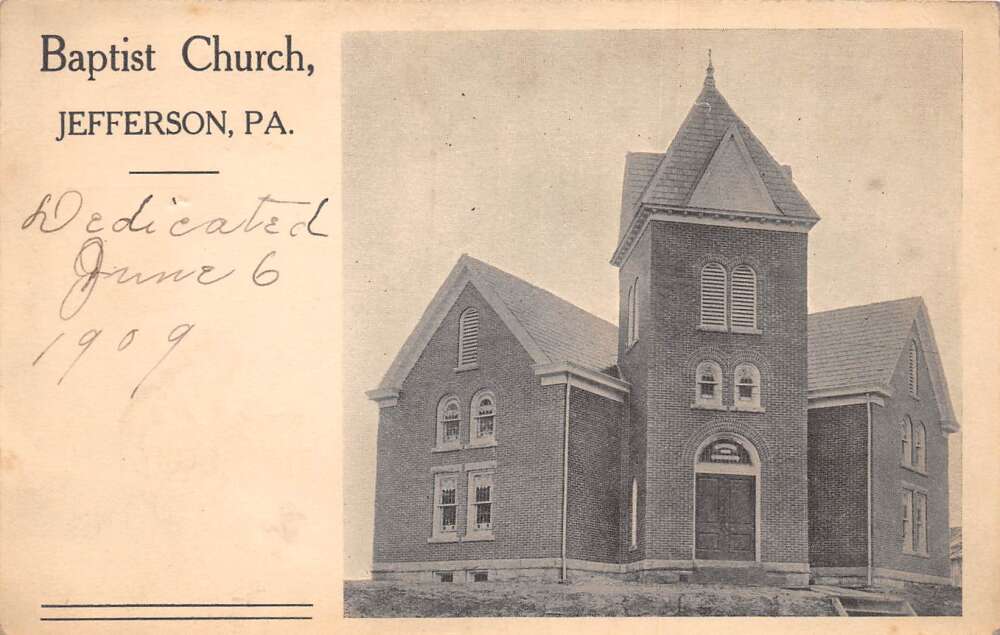 Baptist Church,
JEFFERSON, PA.
Dedicated
June 6
1909